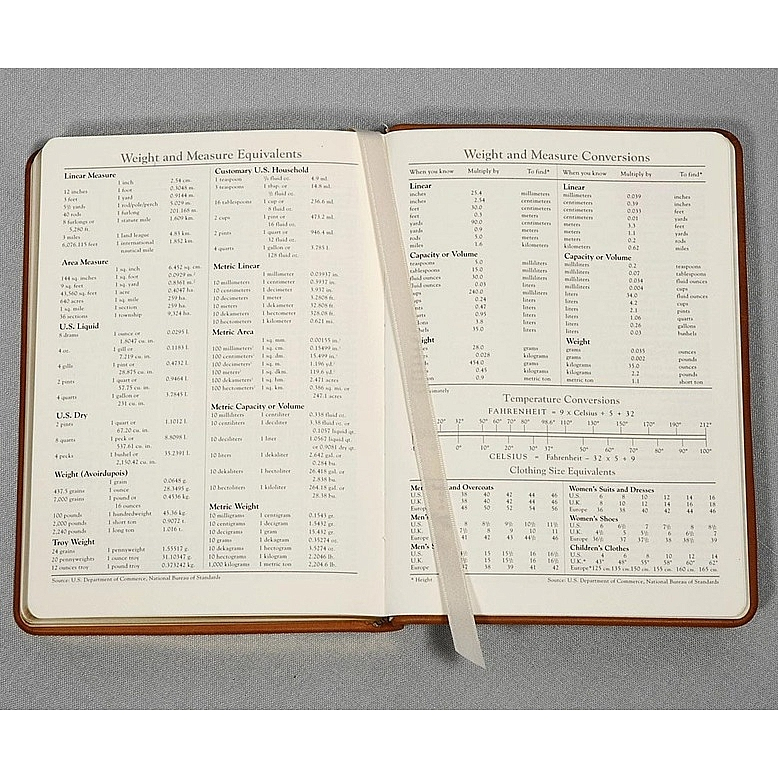 Weight and Measure Equivalents
Linear Measure
1 inch 2.54 cm.
12 inches 1 foot 0.3048 m.
3 feet 1 yard 0.9144 m.
5½ yards 1 rod/pole/perch 5.029 m.
40 rods 1 furlong 201.168 m.
8 furlongs or 1 statute mile 1.609 km.
5,280 ft.
3 miles 1 land league 4.83 km.
6,076.115 feet 1 international 1.852 km.
nautical mile
Area Measure
1 sq. inch 6.452 sq. cm.
144 sq. inches 1 sq. foot 0.0929 m.²
9 sq. feet 1 sq. yard 0.8361 m.²
43,560 sq. feet 1 acre 0.4047 ha.
640 acres 1 sq. mile 259 ha.
1 sq. mile 1 section 259 ha.
36 sections 1 township 9,324 ha.
U.S. Liquid
8 drams 1 ounce or 0.0295 l.
1.8047 cu. in.
4 oz. 1 gill or 0.1183 l.
7.219 cu. in.
4 gills 1 pint or 0.4732 l.
28.875 cu. in.
2 pints 1 quart or 0.9464 l.
57.75 cu. in.
4 quarts 1 gallon or 3.7845 l.
231 cu. in.
U.S. Dry
2 pints 1 quart or 1.1012 l.
67.20 cu. in.
8 quarts 1 peck or 8.8098 l.
537.61 cu. in.
4 pecks 1 bushel or 35.2391 l.
2,150.42 cu. in.
Weight (Avoirdupois)
1 grain 0.0648 g.
437.5 grains 1 ounce 28.3495 g.
7,000 grains 1 pound or 0.4536 kg.
16 ounces
100 pounds 1 hundredweight 45.36 kg.
2,000 pounds 1 short ton 0.9072 t.
2,240 pounds 1 long ton 1.016 t.
Troy Weight
24 grains 1 pennyweight 1.55517 g.
20 pennyweights 1 ounce troy 31.10347 g.
12 ounces troy 1 pound troy 0.373242 kg.
Source: U.S. Department of Commerce, National Bureau of Standards
Customary U.S. Household
1 teaspoon ⅙ fluid oz. 4.9 ml.
3 teaspoons 1 tbsp. or 14.8 ml.
½ fluid oz.
16 tablespoons 1 cup or 236.6 ml.
8 fluid oz.
2 cups 1 pint or 473.2 ml.
16 fluid oz.
2 pints 1 quart or 946.4 ml.
32 fluid oz.
4 quarts 1 gallon or 3.785 l.
128 fluid oz.
Metric Linear
1 millimeter 0.03937 in.
10 millimeters 1 centimeter 0.3937 in.
10 centimeters 1 decimeter 3.937 in.
10 decimeters 1 meter 3.2808 ft.
10 meters 1 dekameter 32.808 ft.
10 dekameters 1 hectometer 328.08 ft.
10 hectometers 1 kilometer 0.621 mi.
Metric Area
1 sq. mm. 0.00155 in.²
100 millimeters² 1 sq. cm. 0.15499 in.²
100 centimeters² 1 sq. dm. 15.499 in.²
100 decimeters² 1 sq. m. 1.196 yd.²
100 meters² 1 sq. dkm. 119.6 yd.²
100 dekameters² 1 sq. hm. 2.471 acres
100 hectometers² 1 sq. km. 0.386 sq. mi. or
247.1 acres
Metric Capacity or Volume
10 milliliters 1 centiliter 0.338 fluid oz.
10 centiliters 1 deciliter 3.38 fluid oz. or
0.1057 liquid qt.
10 deciliters 1 liter 1.0567 liquid qt.
or 0.9081 dry qt.
10 liters 1 dekaliter 2.642 gal. or
0.284 bu.
10 dekaliters 1 hectoliter 26.418 gal. or
2.838 bu.
10 hectoliters 1 kiloliter 264.18 gal. or
28.38 bu.
Metric Weight
10 milligrams 1 centigram 0.1543 gr.
10 centigrams 1 decigram 1.5432 gr.
10 decigrams 1 gram 15.432 gr.
10 grams 1 dekagram 0.35274 oz.
10 dekagrams 1 hectogram 3.5274 oz.
10 hectograms 1 kilogram 2.2046 lb.
1,000 kilograms 1 metric ton 2,204.6 lb.
Weight and Measure Conversions
When you know Multiply by To find*
Linear
inches 25.4 millimeters
inches 2.54 centimeters
feet 30.0 centimeters
feet 0.3 meters
yards 90.0 centimeters
yards 0.9 meters
rods 5.0 meters
miles 1.6 kilometers
Capacity or Volume
teaspoons 5.0 milliliters
tablespoons 15.0 milliliters
fluid ounces 30.0 milliliters
fluid ounces 0.03 liters
cups 240.0 milliliters
0.24 liters
0.47 liters
0.95 liters
3.8 liters
35.0 liters
28.0 grams
0.028 kilograms
454.0 grams
0.45 kilograms
0.9 metric ton
When you know Multiply by To find*
Linear
millimeters 0.039 inches
centimeters 0.39 inches
centimeters 0.033 feet
centimeters 0.01 yards
meters 3.3 feet
meters 1.1 yards
meters 0.2 rods
kilometers 0.62 miles
Capacity or Volume
milliliters 0.2 teaspoons
milliliters 0.07 tablespoons
milliliters 0.034 fluid ounces
milliliters 0.004 cups
liters 34.0 fluid ounces
liters 4.2 cups
liters 2.1 pints
liters 1.06 quarts
liters 0.26 gallons
liters 0.03 bushels
Weight
grams 0.035 ounces
grams 0.002 pounds
kilograms 35.0 ounces
kilograms 2.2 pounds
metric ton 1.1 short ton
Temperature Conversions
FAHRENHEIT = 9 x Celsius ÷ 5 + 32
32° 50° 60° 70° 80° 98.6° 110° 130° 150° 170° 190° 212°
0° 20° 30° 40° 50° 60° 70° 80° 90° 100°
CELSIUS = Fahrenheit − 32 x 5 ÷ 9
Clothing Size Equivalents
and Overcoats
U.S. 38 40 42 44 46
U.K. 38 40 42 44 46
Europe 48 50 52 54 56
U.S. 8 8½ 9½ 10½ 11½
U.K. 7½ 8 9 10 11
Europe 41 42 43 44½ 46
U.S. 15 15½ 16 16½
U.K. 15 15½ 16 16½
Europe 38 39 41 42
* Height
Women's Suits and Dresses
U.S. 6 8 10 12 14 16
U.K. 8 10 12 14 16 18
Europe 36 38 40 42 44 46
Women's Shoes
U.S. 6 6½ 7 7½ 8 8½
U.K. 4½ 5 5½ 6 6½ 7
Europe 36½ 37 37½ 38 38½ 39
Children's Clothes
U.S. 4 6 8 10 12 14
U.K.* 43" 48" 55" 58" 60" 62"
Europe* 125 cm. 135 cm. 150 cm. 155 cm. 160 cm. 165 cm.
Source: U.S. Department of Commerce, National Bureau of Standards